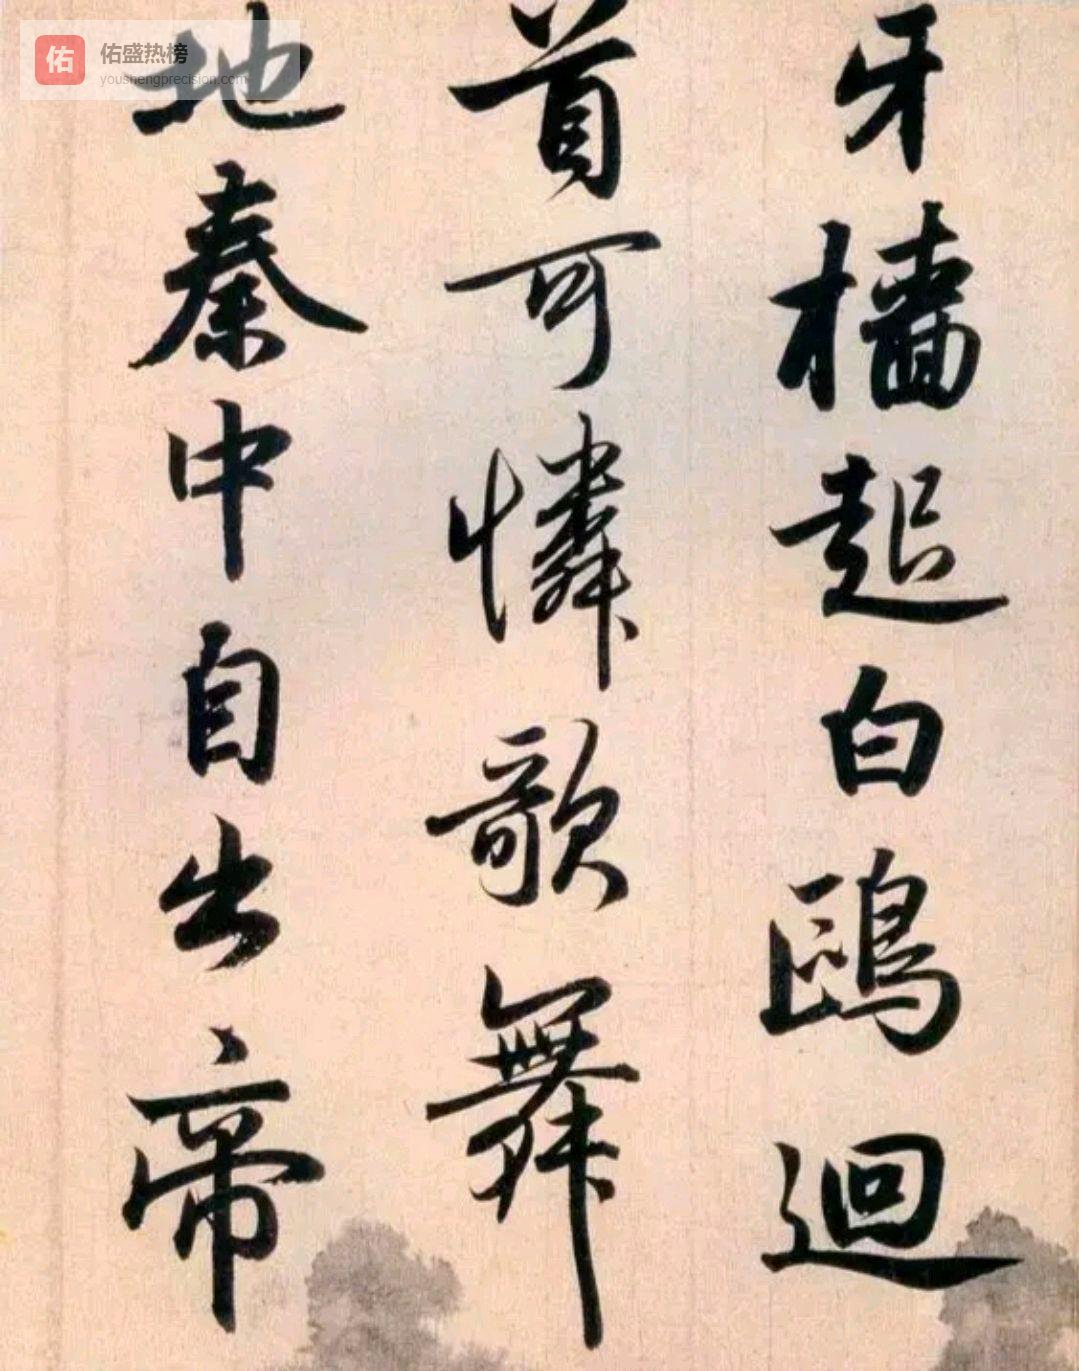 佑
佑盛热榜
youshengprecision.com
牙檣起白鷗迴
首可憐歌舞
地秦中自出帝